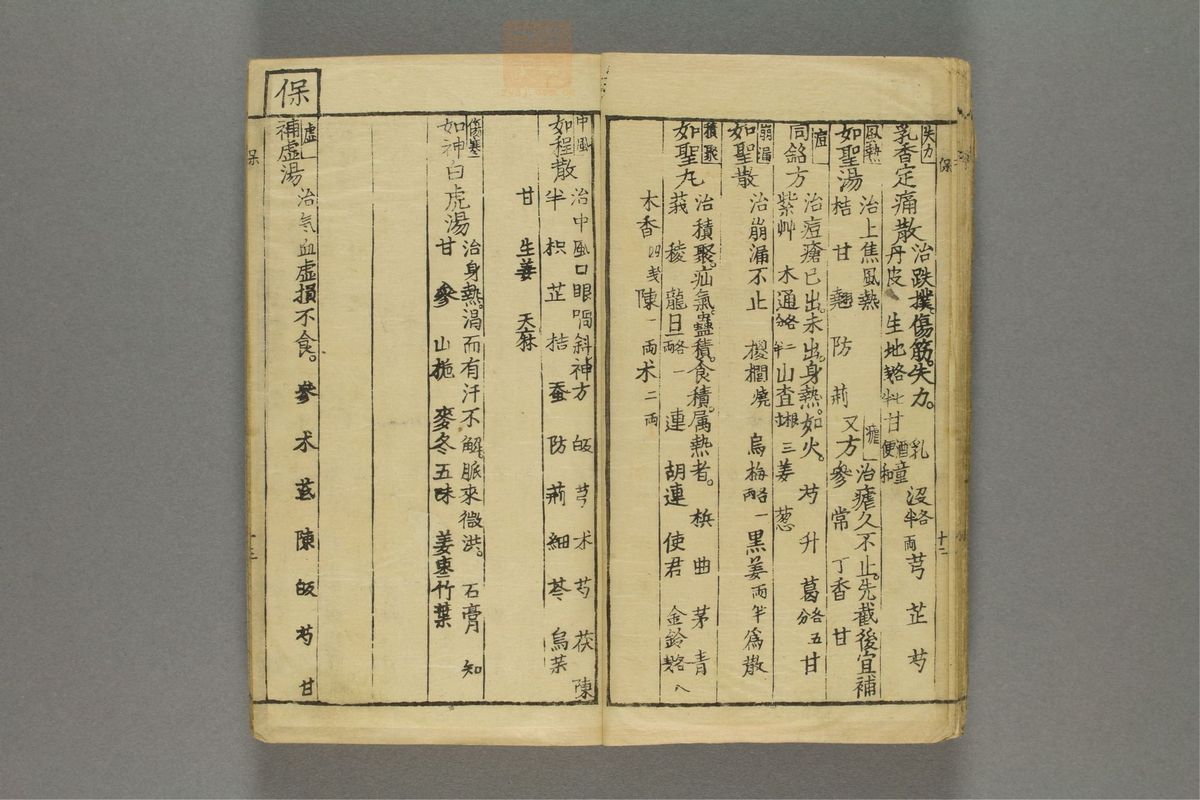 失力
乳香定痛散
治跌撲傷筋。失力。乳 沒各半両 芎 芷 芍
丹皮 生地各七戔半 甘 酒童便和
風熱
如聖湯
治上焦風熱 瘧 治瘧久不止。先截後宜補
桔 甘 翹 防 荊 又方參 常 丁香 甘
痘
同銘方
治痘瘡已出。未出。身熱。如火。芍 升 葛各五分 甘
紫艸 木通各二分半 山査根廿三 姜 葱
崩漏
如聖散
治崩漏不止 椶櫚燒 烏梅各一両 黒姜両半 為散
積聚
如聖丸
治積聚。疝氣。蠱積。食積。属熱者。梹 曲 茅 青
莪 稜 龍旦各一両 連 胡連 使君 金鈴各八戔
木香四戔 陳一両 术二両
保
十二
中風
如程散
治中風口眼喎斜神方 皈 芎 术 芍 茯 陳
半 枳 芷 桔 蚕 防 荊 細 芩 烏茱
甘 生姜 天麻
傷寒
如神白虎湯
治身熱。渴而有汗不解。脈來微洪。石膏 知
甘 參 山梔 麥冬 五味 姜棗竹葉
保
虛
補虛湯
治氣血虛損不食。參 术 茋 陳 皈 芍 甘
保
十三